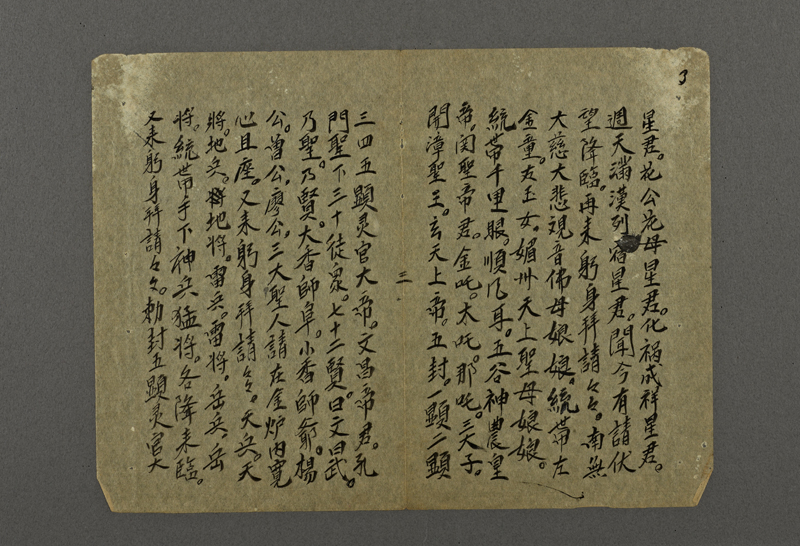 3
星君。花公花母星君。化禍成祥星君。
週天滿漢列宿星君。聞今有請伏
望降臨。再來躬身拜請々々。南無
大慈大悲観音佛母娘娘。統帶左
金童。右玉女。媚州天上聖母娘娘。
統帶千里眼。順風耳。五谷神農皇
帝。関聖帝君。金吒。太吒。那吒。三天子。
開漳聖王。玄天上帝。五封。一顯二顯
三
三四五顯灵官大帝。文昌帝君。孔
門聖下三千徒衆。七十二賢。曰文曰武。
乃聖。乃賢。大香師阜。小香師爺。楊
公。曽公。廖公。三大聖人請在金炉内寬
心且座。又来躬身拜請々々。天兵。天
將。地兵。地将。雷兵。雷将。岳兵。岳
将。統帶手下神兵猛将。各降来臨。
又来躬身拜請々々。勅封五顯灵官大